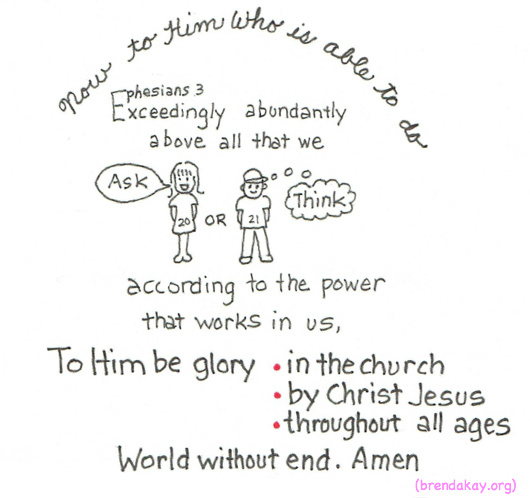 Now to Him Who is able to do
Ephesians 3
Exceedingly abundantly
above all that we
Ask
20 OR 21
Think
according to the power
that works in us,
To Him be glory • in the church
• by Christ Jesus
• throughout all ages
World without end. Amen
(brendakay.org)